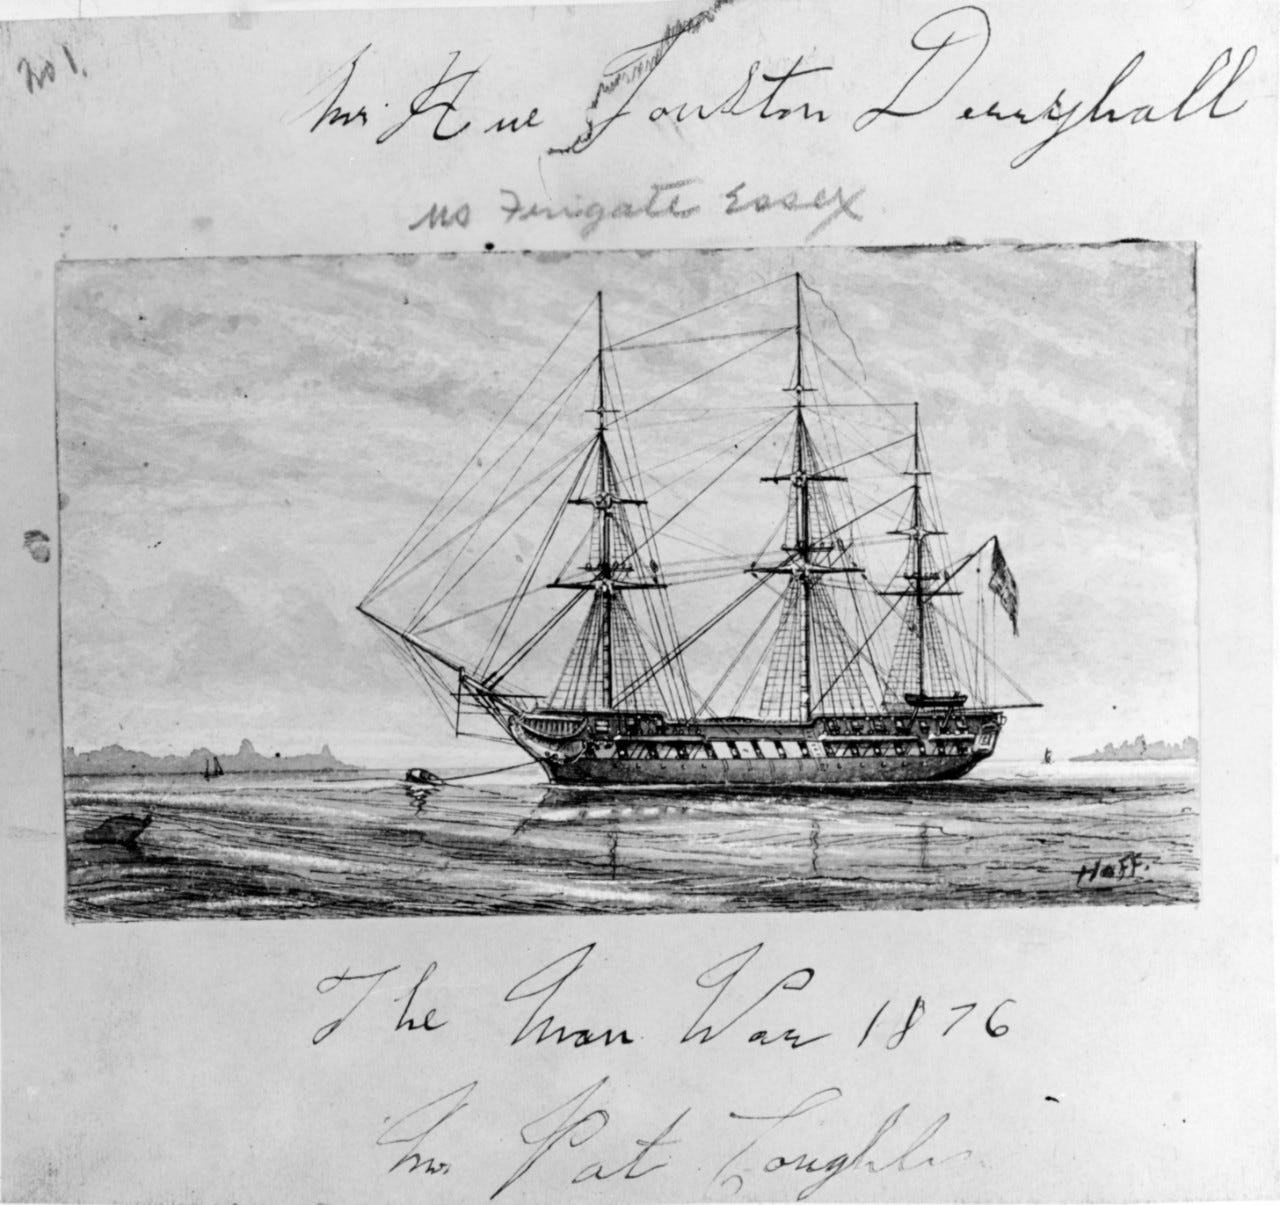 No 1.
Mr. Hue Foulston Derryhall
US Frigate Essex
Hoff.
The Man War 1876
Mr. Pat Coughlin